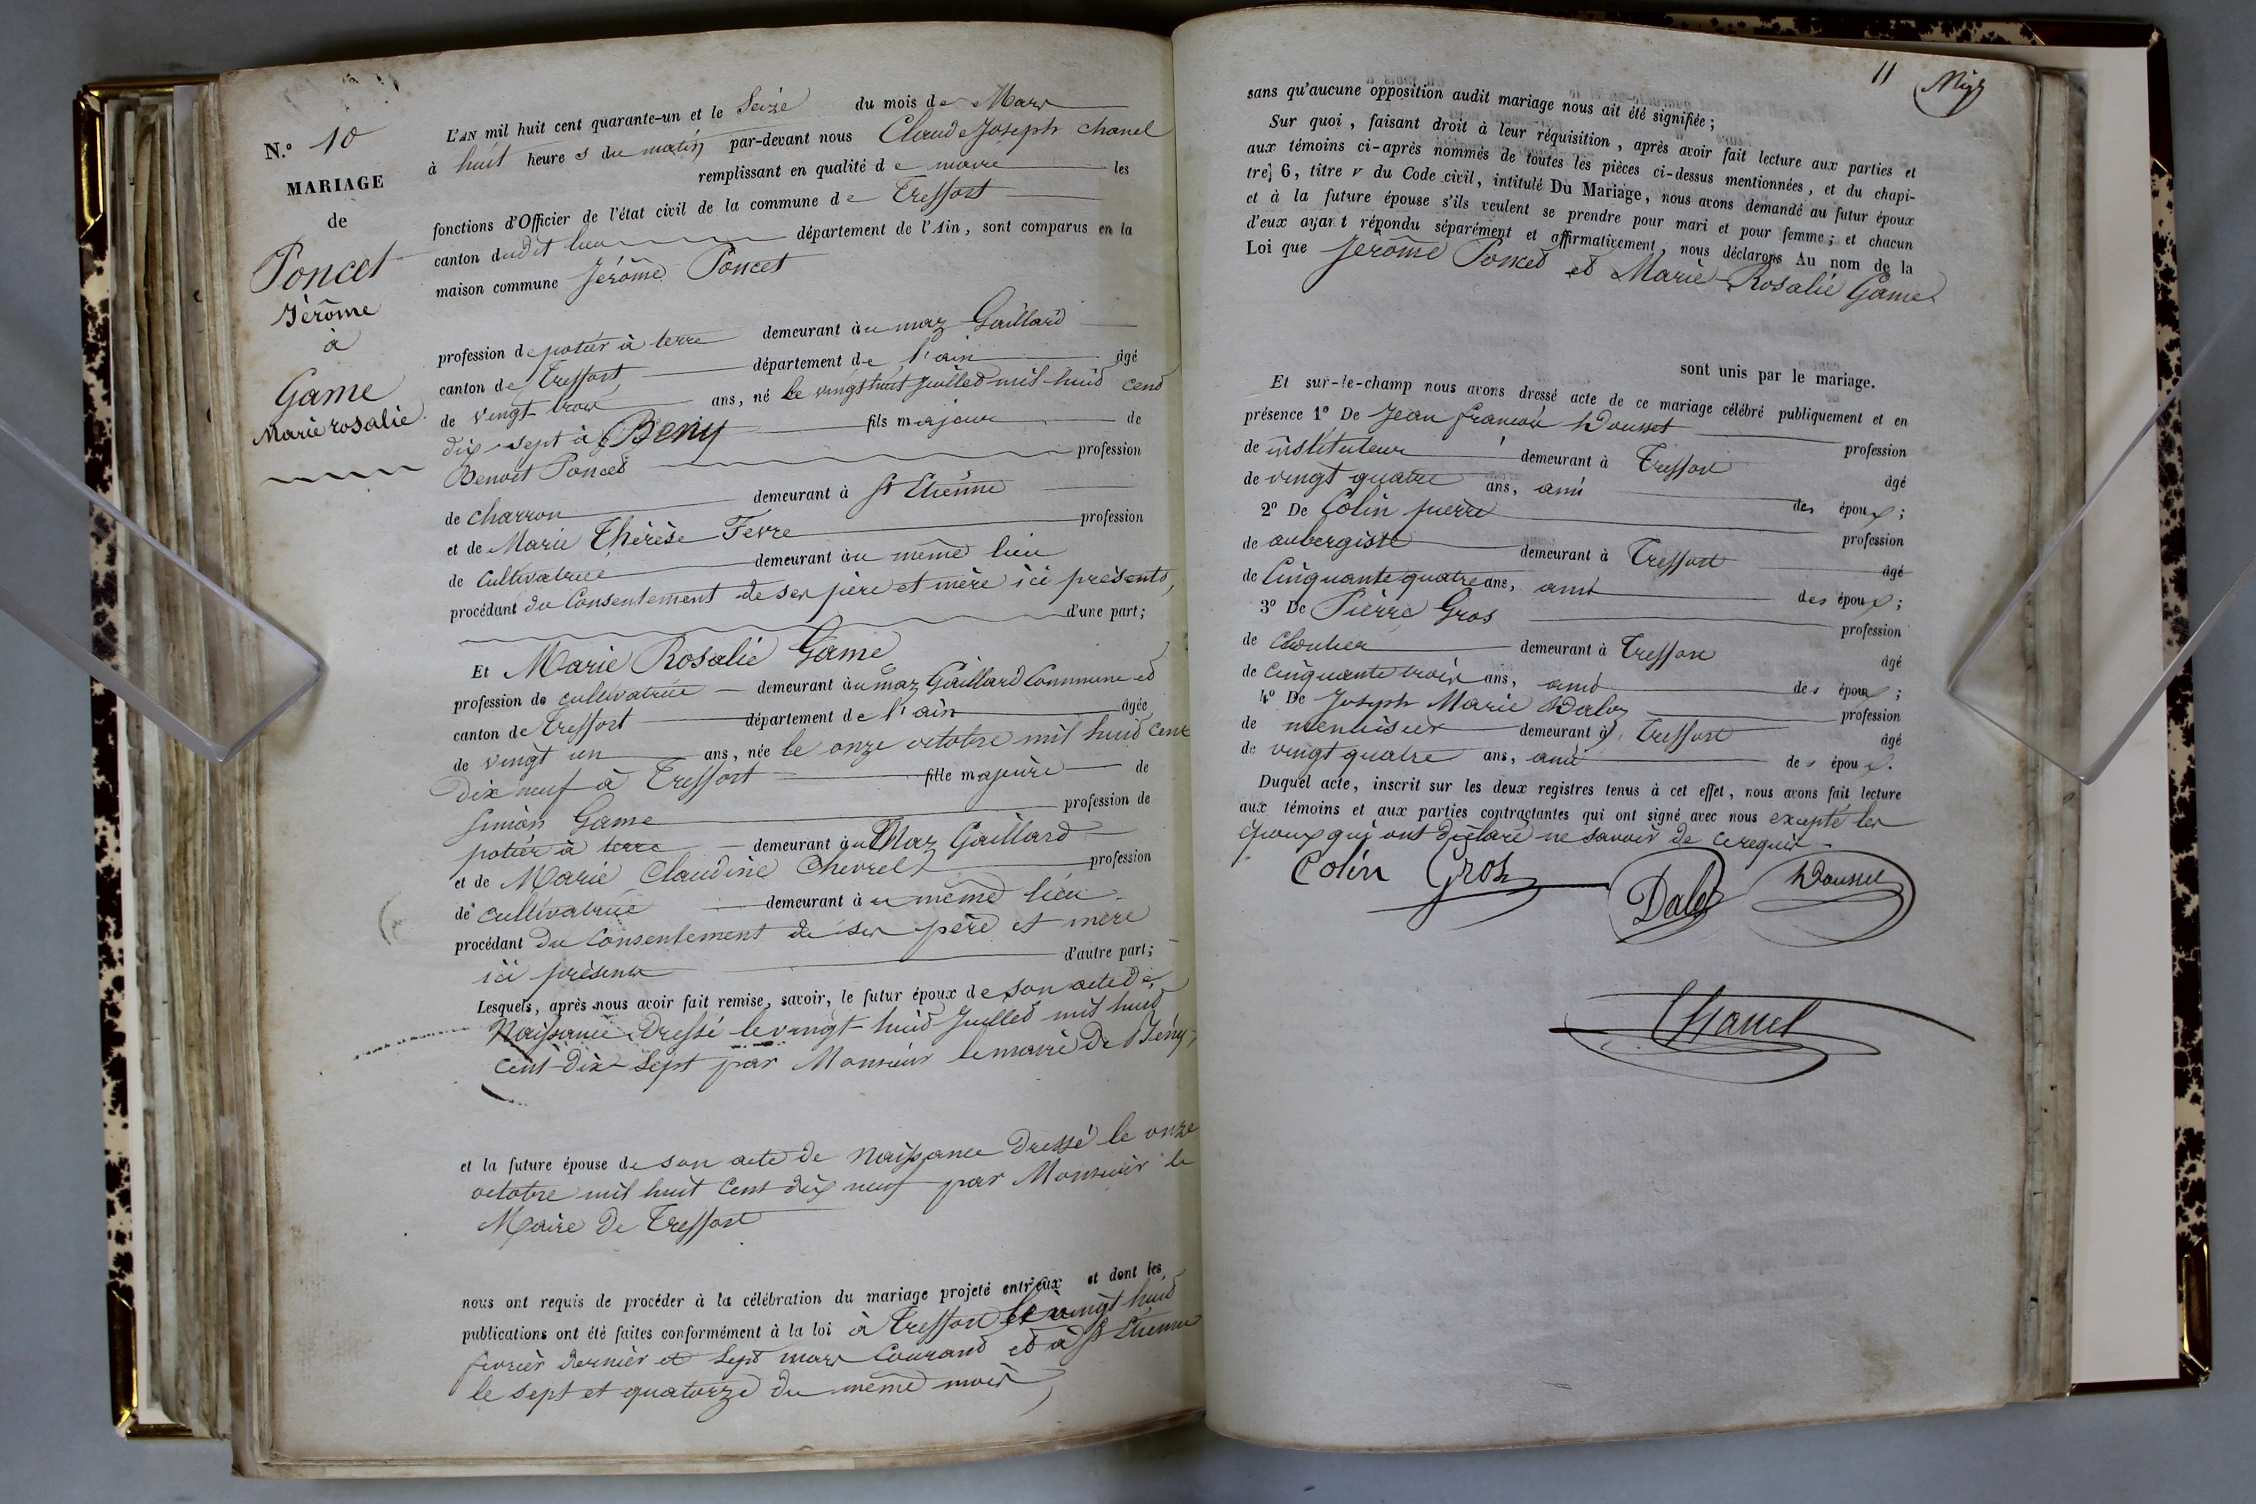 N.º 10
MARIAGE
de
Poncet
Jérôme
à
Game
Marie rosalie
L'AN mil huit cent quarante-un et le Seize du mois de Mars
à huit heures du matin par-devant nous Claude Joseph Chanel
remplissant en qualité de maire les
fonctions d'Officier de l'état civil de la commune de Treffort
canton dudit lieu département de l'Ain, sont comparus en la
maison commune Jérôme Poncet
profession de potier à terre demeurant au maz Gaillard
canton de Treffort département de l'ain âgé
de vingt trois ans, né le vingt huit juillet mil huit cent
dix sept à Beny fils majeur de
Benoit Poncet profession
de charron demeurant à St Etienne
et de Marie Thérèse Fevre profession
de Cultivatrice demeurant au même lieu
procédant du Consentement de ses père et mère ici présents,
d'une part;
Et Marie Rosalie Game
profession de cultivatrice demeurant au maz Gaillard Commune et
canton de Treffort département de l'ain âgée
de vingt un ans, née le onze octobre mil huit cent
dix neuf à Treffort fille majeure de
Simon Game profession de
potier à terre demeurant au Maz Gaillard
et de Marie Claudine Chevrel profession
de cultivatrice demeurant au même lieu
procédant du Consentement de ses père et mère
ici présents d'autre part;
Lesquels, après nous avoir fait remise, savoir, le futur époux de son acte de
Naissance Dressé le vingt-huit Juillet mil huit
Cent Dix-Sept par Monsieur le maire De Bény,
et la future épouse de son acte de Naissance Dressé le onze
octobre mil huit Cent dix neuf par Monsieur le
Maire De Treffort
nous ont requis de procéder à la célébration du mariage projeté entr'eux et dont les
publications ont été faites conformément à la loi à Treffort le vingt huit
fevrier dernier et Sept mars Courant et à St Etienne
le sept et quatorze du même mois
11
sans qu'aucune opposition audit mariage nous ait été signifiée;
Sur quoi, faisant droit à leur réquisition, après avoir fait lecture aux parties et
aux témoins ci-après nommés de toutes les pièces ci-dessus mentionnées, et du chapi-
tre 6, titre v du Code civil, intitulé Du Mariage, nous avons demandé au futur époux
et à la future épouse s'ils veulent se prendre pour mari et pour femme; et chacun
d'eux ayant répondu séparément et affirmativement, nous déclarons Au nom de la
Loi que Jérôme Poncet et Marie Rosalie Game
sont unis par le mariage.
Et sur-le-champ nous avons dressé acte de ce mariage célébré publiquement et en
présence 1º De Jean françois Dousset profession
de instituteur demeurant à Treffort âgé
de vingt quatre ans, ami des époux;
2º De Colin pierre profession
de aubergiste demeurant à Treffort âgé
de Cinquante quatre ans, ami des époux;
3º De Pierre Gros profession
de demeurant à Treffort âgé
de cinquante trois ans, ami des époux;
4º De Joseph Marie Daloz profession
de menuisier demeurant à Treffort âgé
de vingt quatre ans, ami des époux.
Duquel acte, inscrit sur les deux registres tenus à cet effet, nous avons fait lecture
aux témoins et aux parties contractantes qui ont signé avec nous excepté les
époux qui ont déclaré ne savoir de ce requis.
Colin Gros Daloz Dousset
Chanel